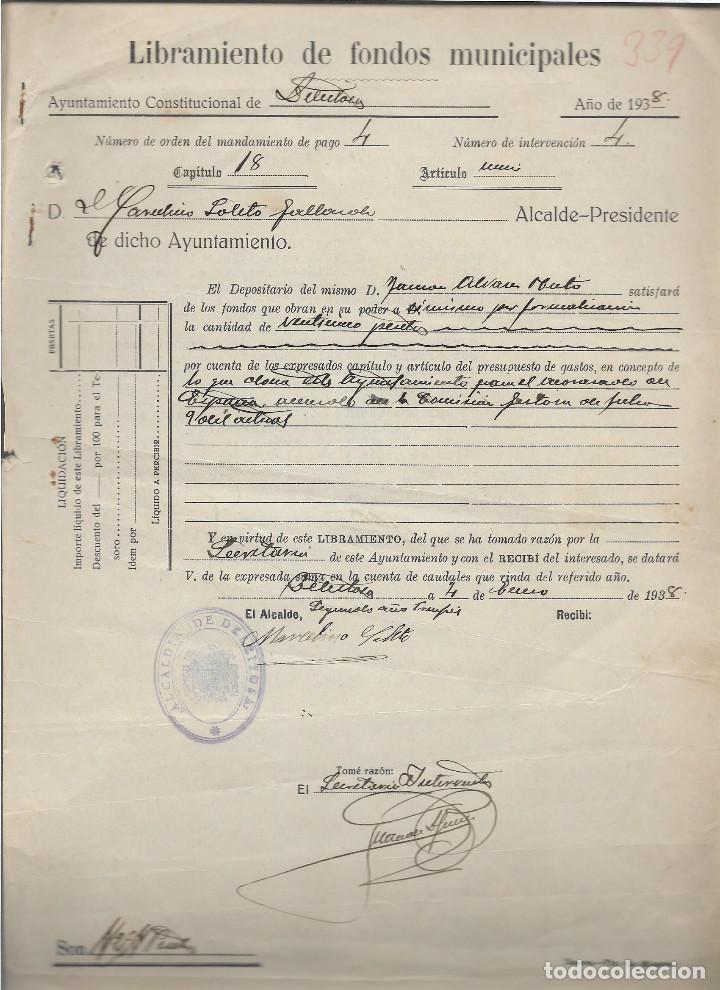 Libramiento de fondos municipales 339
Ayuntamiento Constitucional de Deleitosa Año de 1938.
Número de orden del mandamiento de pago 4 Número de intervención 4.
Capítulo 18 Artículo uni
D. Marcelino Soleto Alcalde-Presidente
de dicho Ayuntamiento.
El Depositario del mismo D. Ramon Alvares satisfará
de los fondos que obran en su poder a si mismo por formalización
la cantidad de pesetas
por cuenta de los expresados capítulo y artículo del presupuesto de gastos, en concepto de
lo que este Ayuntamiento
acuerdo de la Comisión Gestora de
actual
Y en virtud de este LIBRAMIENTO, del que se ha tomado razón por la
Secretaria de este Ayuntamiento y con el RECIBÍ del interesado, se datará
V. de la expresada suma en la cuenta de caudales que rinda del referido año.
Deleitosa a 4 de Enero de 1938.
El Alcalde, Segundo año Triunfal Recibí:
Marcelino Soleto
ALCALDIA DE DELEITOSA
Tomé razón:
El Secretario Interventor
Son
PESETAS
LIQUIDACIÓN
Importe líquido de este Libramiento
Descuento del — por 100 para el Te-
soro
Idem por
LÍQUIDO A PERCIBIR
todocoleccion.net